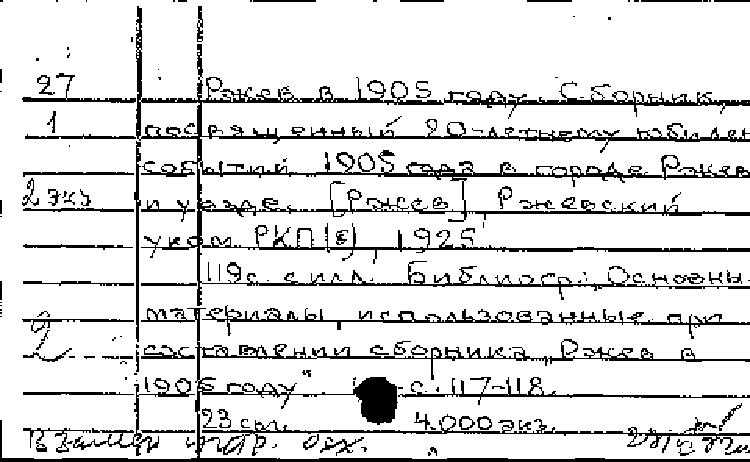 27 Ржев в 1905 году. Сборник,
1 посвященный 20-летнему юбилею
событий 1905 года в городе Ржев
2 экз и уезде. [Ржев], Ржевский
уком РКП(б), 1925
119 с. с илл. Библиогр.: Основны
материалы, использованные при
2 составлении сборника "Ржев в
1905 году". с. 117-118.
23 см. 4.000 экз.
Взамен